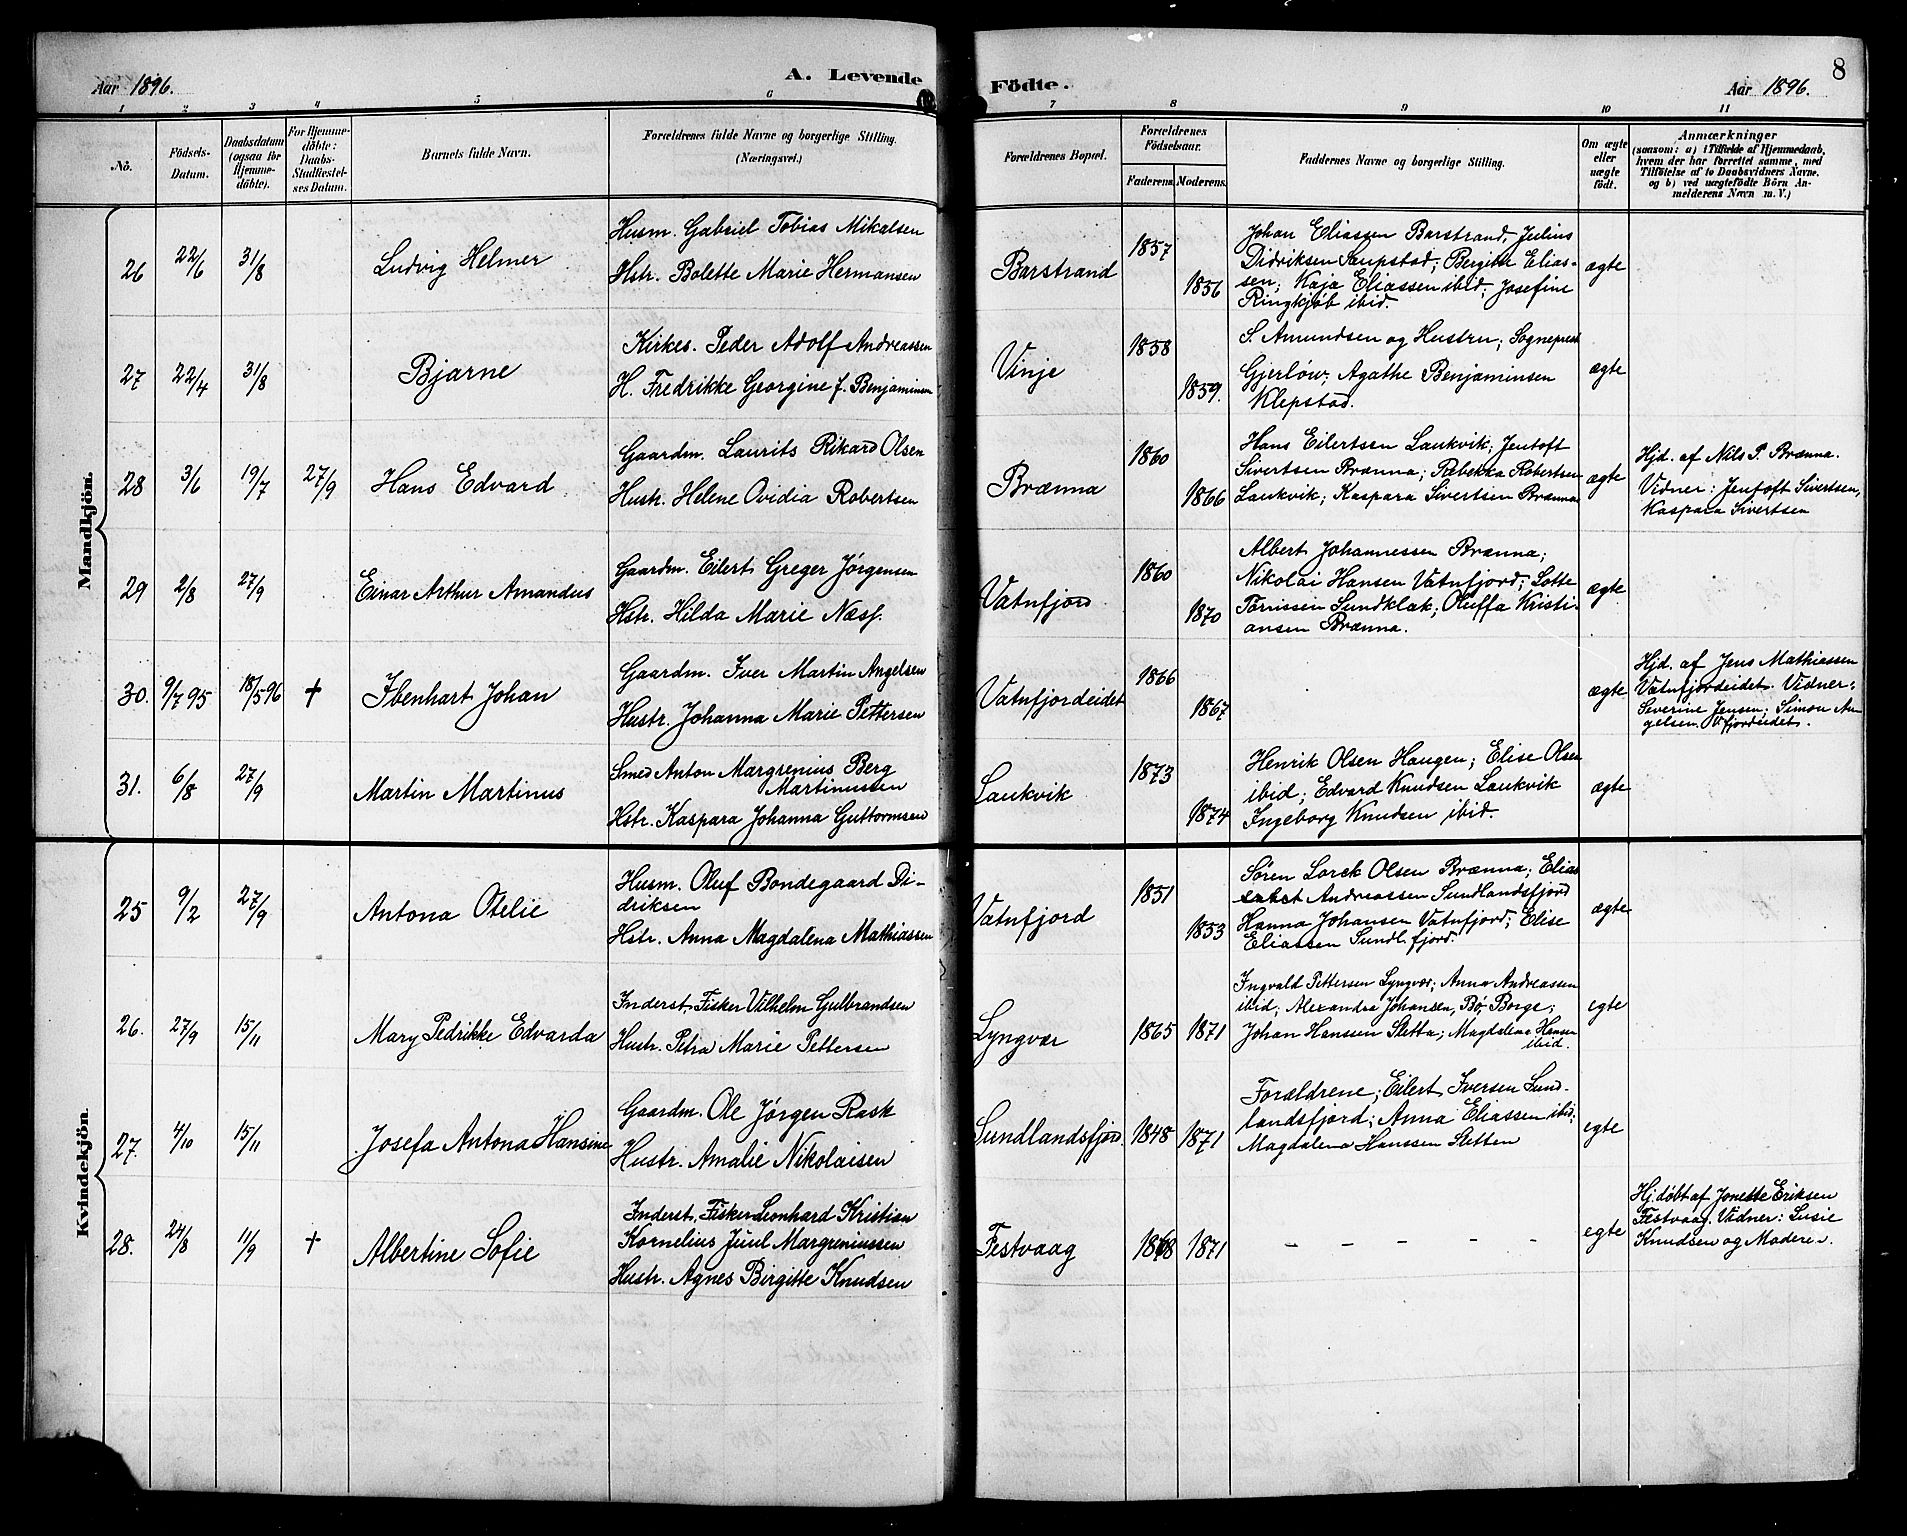 Aar 1896.
A. Levende
Födte.
Aar 1896.
8
1 2 3 4 5 6 7 8 9 10 11
No.
Födsels-
Datum.
Daabsdatum
(ogsaa för
Hjemme-
döbte).
For Hjemme-
döbte:
Daabs-
Stadfæstel-
ses Datum.
Barnets fulde Navn.
Forældrenes fulde Navne og borgerlige Stilling.
(Næringsvei.)
Forældrenes Bopæl.
Forældrenes
Födselsaar.
Faderens. Moderens.
Faddernes Navne og borgerlige Stilling.
Om ægte
eller
uægte
födt.
Anmærkninger
(saasom: a) i Tilfælde af Hjemmedaab,
hvem der har forrettet samme, med
Tilföielse af to Daabsvidners Navne.
og b) ved uægtefödte Börn An-
melderens Navn m. V.)
Mandkjön.
26 22/6 31/8 Ludvig Helmer
Husm. Gabriel Tobias Mikalsen
Hstr. Bolette Marie Hermansen
Barstrand 1857 1856
Johan Eliassen Barstrand, Julius
Didriksen Saupstad; Bergitte Elias-
sen; Kaja Eliassen ibid; Josefine
Ringkjøb ibid.
ægte
27 22/4 31/8 Bjarne
Kirkes. Peder Adolf Andreassen
H. Fredrikke Georgine f. Benjaminsen
Vinje 1858 1859.
S. Amundsen og Hustru; Sogneprest
Gjerløw; Agathe Benjaminsen
Klepstad.
ægte
28 3/6 19/7 27/9 Hans Edvard
Gaardm. Laurits Rikard Olsen
Hustr. Helene Ovidia Robertsen
Brænna 1860 1866
Hans Eilertsen Laukvik; Jentoft
Sivertsen Brænna; Rebekka Robertsen
Laukvik; Kaspara Sivertsen Brænna
ægte
Hjd. af Nils P. Brænna.
Vidner: Jentoft Sivertsen,
Kaspara Sivertsen
29 2/8 27/9 Einar Arthur Amandus
Gaardm. Eilert Greger Jørgensen
Hstr. Hilda Marie Næss.
Vatnfjord. 1860 1870
Albert Johannessen Brænna;
Nikolai Hansen Vatnfjord; Lotte
Tønissen Sundklak; Oluffa Kristi-
ansen Brænna.
ægte
30. 9/7 95 18/5 96 † Ibenhart Johan
Gaardm. Iver Martin Angelsen
Hustr. Johanna Marie Pettersen
Vatnfjordeidet 1866 1867
ægte
Hjd. af Jens Mathiassen
Vatnfjordeidet. Vidner:
Severine Jensen; Simon An-
gelsen. V.fjordeidet.
31. 6/8 27/9 Martin Martinus
Smed Anton Margrenius Berg
Martinussen
Hstr. Kaspara Johanna Guttormsen
Laukvik 1873 1874
Henrik Olsen Haugen; Elise Olsen
ibid; Edvard Knudsen Laukvik
Ingeborg Knudsen ibid.
ægte
Kvindekjön.
25 9/2 27/9 Antona Otelie
Husm. Oluf Bondegaard Di-
driksen
Hstr. Anna Magdalena Mathiassen
Vatnfjord 1851 1853
Søren Lorck Olsen Brænna; Elias
Andreassen Sundlandsfjord
Hanna Johansen Vatnfjord; Elise
Eliassen Sundl.fjord.
ægte
26. 27/9 15/11 Mary Pedrikke Edvarda
Inderst, Fisker Vilhelm Gulbrandsen
Hustr. Petra Marie Pettersen
Lyngvær 1865 1871
Ingvald Pettersen Lyngvær; Anna Andreassen
ibid; Alexandra Johansen, Bø, Borge;
Johan Hanssen Sletta; Magdalena Hansen
ibid.
egte
27. 4/10 15/11 Josefa Antona Hansine
Gaardm. Ole Jørgen Rask
Hustr. Amalie Nikolaisen
Sundlandsfjord. 1848 1871
Forældrene; Eilert Iversen Sund-
landsfjord; Anna Eliassen ibid;
Magdalena Hanssen Sletten
egte
28. 24/8 11/9 † Albertine Sofie
Inderst, Fisker Leonhard Kristian
Kornelius Juul Margreniussen
Hustr. Agnes Birgitte Knudsen
Festvaag 1868 1871
– – – – –
egte
Hj.døbt af Jonette Eriksen
Festvaag. Vidner: Lusie
Knudsen og Moderen.